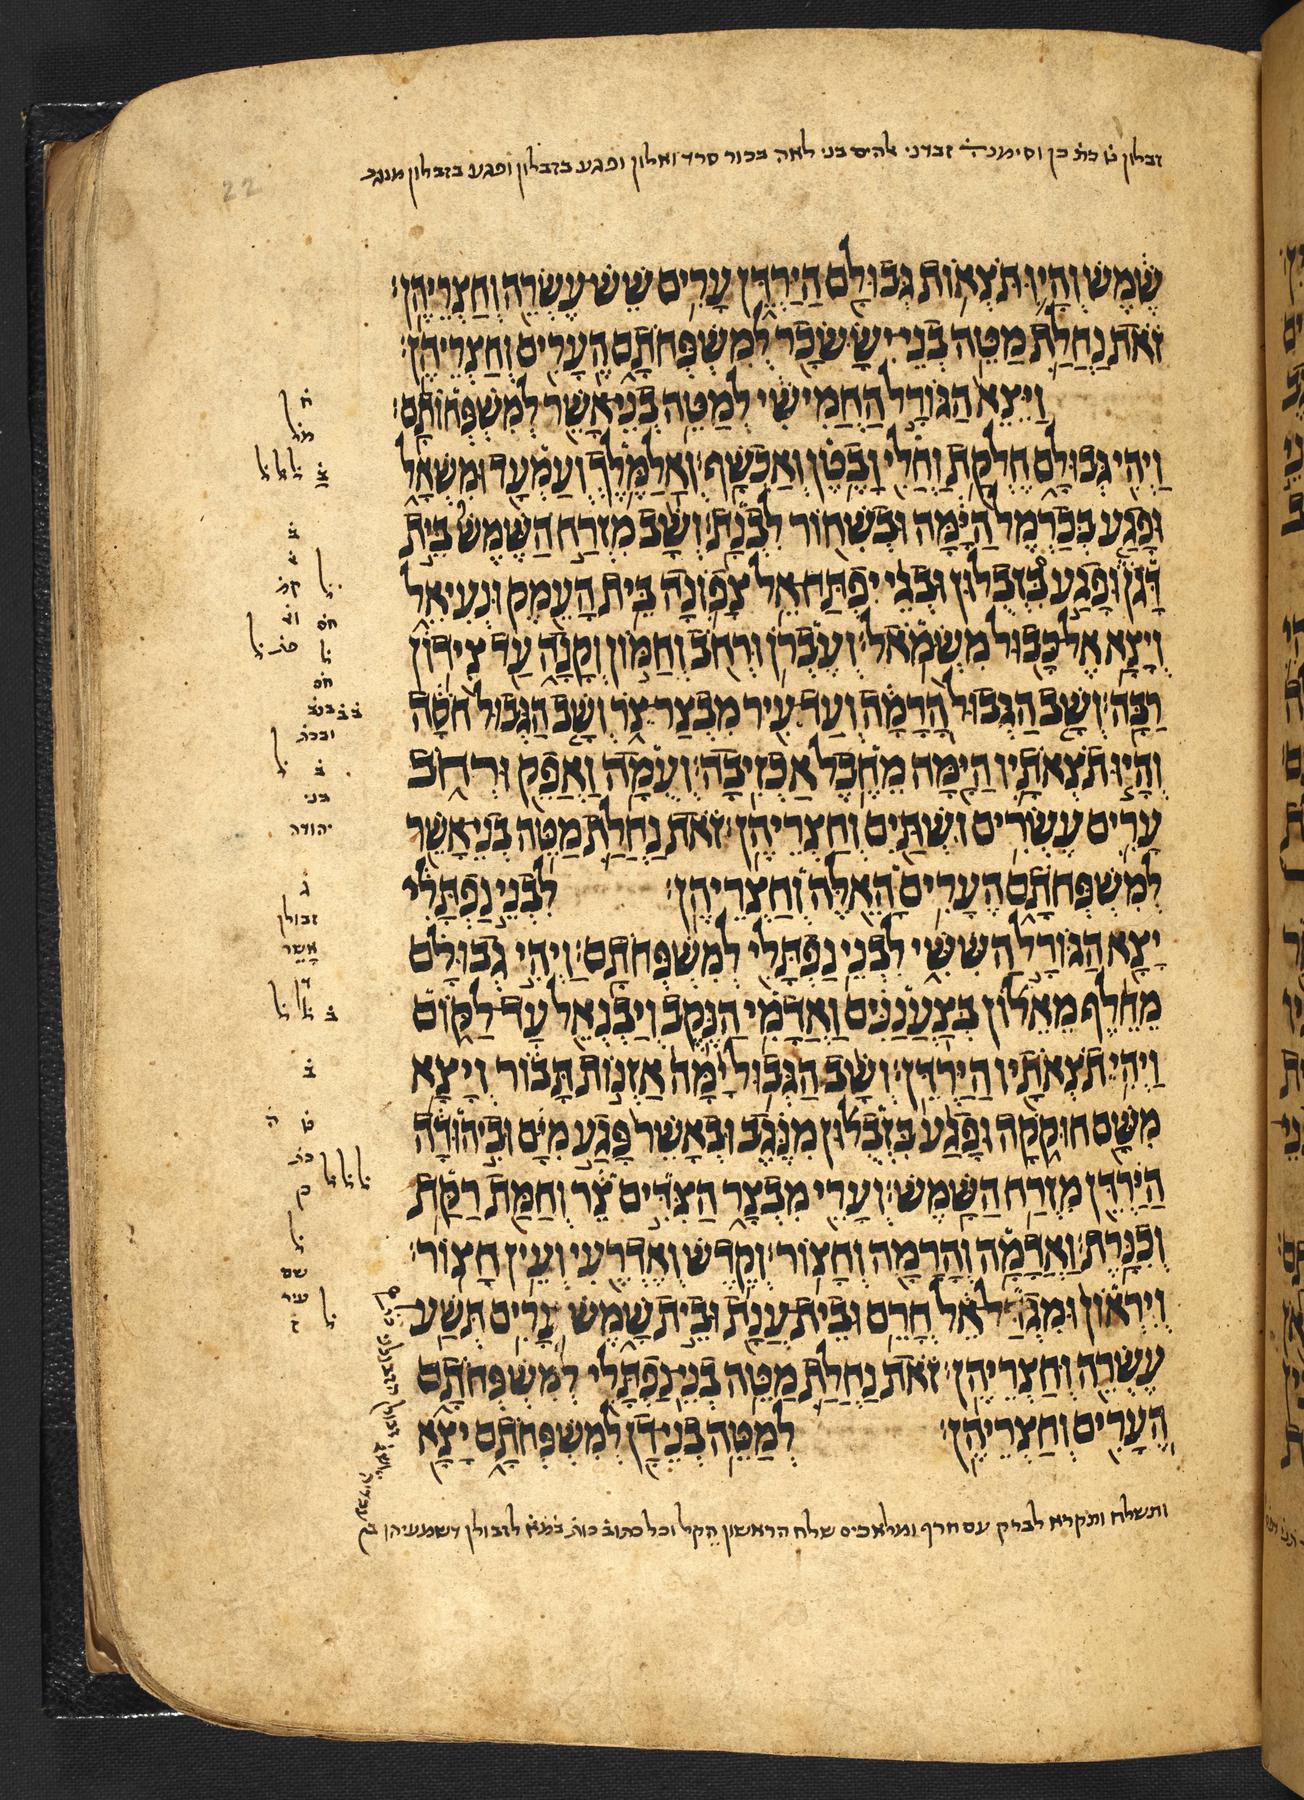 זבלון ט כת כן וסימנה זבדני אהים בני לאה בכור סרד ואלון ופגע בזבלון ופגע בזבלון מנגב
שֶׁמֶשׁ וְהָיוּ תֹּצְאוֹת גְּבוּלָם הַיַּרְדֵּן עָרִים שֵׁשׁ עֶשְׂרֵה וְחַצְרֵיהֶן׃
זֹאת נַחֲלַת מַטֵּה בְנֵי יִשָּׂשכָר לְמִשְׁפְּחֹתָם הֶעָרִים וְחַצְרֵיהֶן׃
וַיֵּצֵא הַגּוֹרָל הַחֲמִישִׁי לְמַטֵּה בְנֵי אָשֵׁר לְמִשְׁפְּחוֹתָם׃
וַיְהִי גְּבוּלָם חֶלְקַת וַחֲלִי וָבֶטֶן וְאַכְשָׁף׃ וְאַלַמֶּלֶךְ וְעַמְעָד וּמִשְׁאָל
וּפָגַע בְּכַרְמֶל הַיָּמָּה וּבְשִׁחוֹר לִבְנָת׃ וְשָׁב מִזְרַח הַשֶּׁמֶשׁ בֵּית
דָּגֹן וּפָגַע בִּזְבֻלוּן וּבְגֵי יִפְתַּח אֵל צָפוֹנָה בֵּית הָעֵמֶק וּנְעִיאֵל
וְיָצָא אֶל כָּבוּל מִשְּׂמֹאל׃ וְעֶבְרֹן וּרְחֹב וְחַמּוֹן וְקָנָה עַד צִידוֹן
רַבָּה׃ וְשָׁב הַגְּבוּל הָרָמָה וְעַד עִיר מִבְצַר צֹר וְשָׁב הַגְּבוּל חֹסָה
וְהָיוּ תֹצְאֹתָיו הַיָּמָּה מֵחֶבֶל אַכְזִיבָה׃ וְעֻמָה וַאֲפֵק וּרְחֹב
עָרִים עֶשְׂרִים וּשְׁתַּיִם וְחַצְרֵיהֶן׃ זֹאת נַחֲלַת מַטֵּה בְנֵי אָשֵׁר
לְמִשְׁפְּחֹתָם הֶעָרִים הָאֵלֶּה וְחַצְרֵיהֶן׃ לִבְנֵי נַפְתָּלִי
יָצָא הַגּוֹרָל הַשִּׁשִּׁי לִבְנֵי נַפְתָּלִי לְמִשְׁפְּחֹתָם׃ וַיְהִי גְבוּלָם
מֵחֵלֶף מֵאֵלוֹן בְּצַעֲנַנִּים וַאֲדָמִי הַנֶּקֶב וְיַבְנְאֵל עַד לַקּוּם
וַיְהִי תֹצְאֹתָיו הַיַּרְדֵּן׃ וְשָׁב הַגְּבוּל יָמָּה אַזְנוֹת תָּבוֹר וְיָצָא
מִשָּׁם חוּקֹקָה וּפָגַע בִּזְבֻלוּן מִנֶּגֶב וּבְאָשֵׁר פָּגַע מִיָּם וּבִיהוּדָה
הַיַּרְדֵּן מִזְרַח הַשָּׁמֶשׁ׃ וְעָרֵי מִבְצָר הַצִּדִּים צֵר וְחַמַּת רַקַּת
וְכִנָּרֶת׃ וַאֲדָמָה וְהָרָמָה וְחָצוֹר׃ וְקֶדֶשׁ וְאֶדְרֶעִי וְעֵין חָצוֹר׃
וְיִרְאוֹן וּמִגְדַּל אֵל חֳרֵם וּבֵית עֲנָת וּבֵית שָׁמֶשׁ עָרִים תְּשַׁע
עֶשְׂרֵה וְחַצְרֵיהֶן׃ זֹאת נַחֲלַת מַטֵּה בְנֵי נַפְתָּלִי לְמִשְׁפְּחֹתָם
הֶעָרִים וְחַצְרֵיהֶן׃ לְמַטֵּה בְנֵי דָן לְמִשְׁפְּחֹתָם יָצָא
ותשלח ותקרא לברק עם חרף ומלאכים שלח הראשון הקל וכל כתוב כות במא לזבולן דשמעיהן
ל
ב ל ל ל
ב
ל
ל
ובכת
ב ל
בני
יהודה
ג
זבולן
אָשֵׁר
ב ל ל
ב
ט ה
כת
ל ל ל
ק
ל
שם
עיר
ל
22